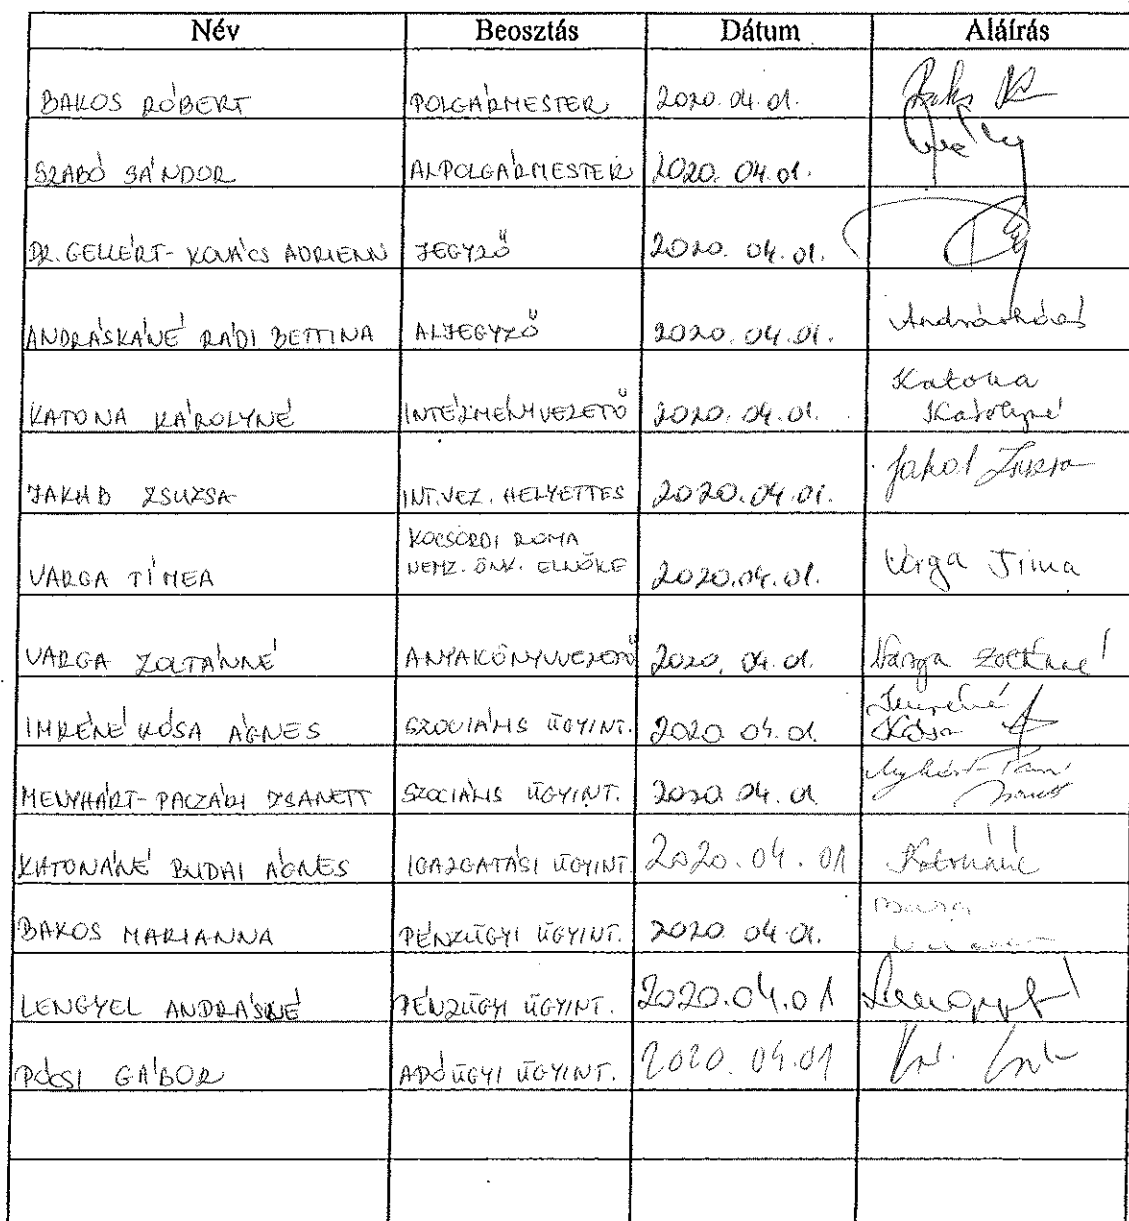 Név Beosztás Dátum Aláírás
BAKOS RÓBERT POLGÁRMESTER 2020. 04. 01.
SZABÓ SÁNDOR ALPOLGÁRMESTER 2020. 04. 01.
DR. GELLÉRT-KOVÁCS ADRIENN JEGYZŐ 2020. 04. 01.
ANDRÁSKÁNÉ RÁDI BETTINA ALJEGYZŐ 2020. 04. 01.
KATONA KÁROLYNÉ INTÉZMÉNYVEZETŐ 2020. 04. 01. Katona
Károlyné
JAKAB ZSUZSA INT.VEZ. HELYETTES 2020. 04. 01. Jakab Zsuzsa
KOCSORDI ROMA
VARGA TÍMEA NEMZ. ÖNK. ELNÖKE 2020. 04. 01. Varga Tímea
VARGA ZOLTÁNNÉ ANYAKÖNYVVEZETŐ 2020. 04. 01. Varga Zoltánné
IMRÉNÉ KÓSA ÁGNES SZOCIÁLIS ÜGYINT. 2020 04. 01. Imréné
Kósa
MENYHÁRT-PACZÁRI ZSANETT SZOCIÁLIS ÜGYINT. 2020 04. 01
KATONÁNÉ BUDAI ÁGNES IGAZGATÁSI ÜGYINT. 2020. 04. 01 Katonáné
BAKOS MARIANNA PÉNZÜGYI ÜGYINT. 2020 04. 01.
LENGYEL ANDRÁSNÉ PÉNZÜGYI ÜGYINT. 2020. 04. 01
PÓCSI GÁBOR ADÓÜGYI ÜGYINT. 2020. 04. 01